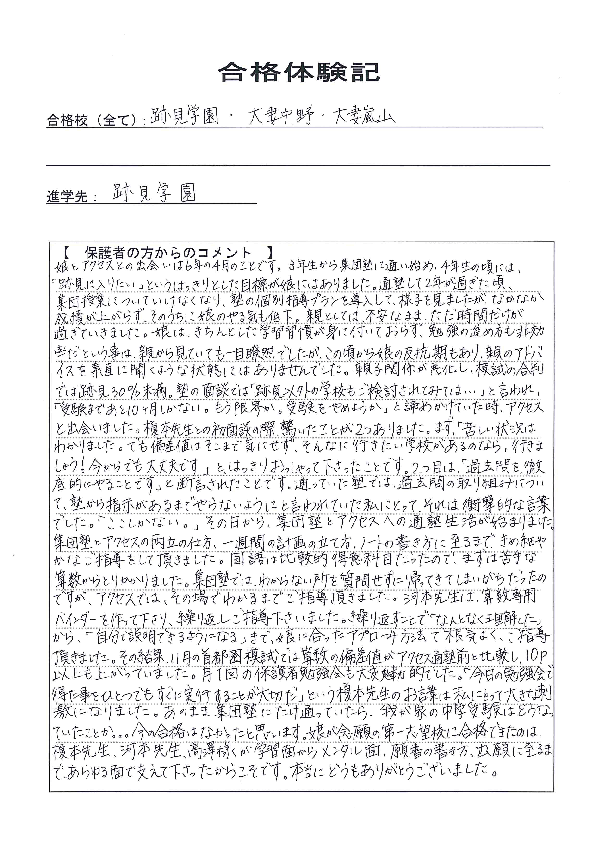 合格体験記
合格校（全て）: 跡見学園・大妻中野・大妻嵐山
進学先： 跡見学園
【 保護者の方からのコメント 】
娘とアクセスとの出会いは6年の4月のことです。3年生から集団塾に通い始め、4年生の頃には、
「跡見に入りたい」というはっきりとした目標が娘にはありました。通塾して2年が過ぎた頃、
集団授業についていけなくなり、塾の個別指導プランを導入して、様子を見ましたがなかなか
成績が上がらず、そのうち、娘のやる気も低下。親としては、不安なまま、ただ時間だけが
過ぎていきました。娘は、きちんとした学習習慣が身に付いておらず、勉強の進め方も非効
率だという事は、親から見ていても一目瞭然でしたが、この頃から娘の反抗期もあり、親のアドバ
イスを素直に聞くような状態にはありませんでした。親子関係が悪化し、模試の合判
では跡見30%未満。塾の面談では「跡見以外の学校もご検討されてみては…」と言われ、
「受験まであと10ヶ月しかない。もう限界か。受験をやめようか」と諦めかけていた時、アクセス
と出会いました。榎本先生との初面談の際、驚いたことが2つありました。まず、「苦しい状況は
わかりました。でも偏差値はそこまで気にせず、そんなに行きたい学校があるのなら、行きま
しょう！今からでも大丈夫です」とはっきりおっしゃって下さったことです。2つ目は、「過去問を徹
底的にやることです」と断言されたことです。通っていた塾では、過去問の取り組みについ
て、塾から指示があるまでやらないようにと言われていた私にとって、それは衝撃的な言葉
でした。「ここしかない。」その日から、集団塾とアクセスへの通塾生活が始まりました。
集団塾とアクセスの両立の仕方、一週間の計画の立て方、ノートの書き方に至るまで、きめ細や
かなご指導をして頂きました。国語は比較的得意科目だったので、まずは苦手な
算数からとりかかりました。集団塾では、わからない所を質問せずに帰ってきてしまいがちだったの
ですが、アクセスでは、その場でわかるまでご指導頂きました。河本先生は、算数専用
バインダーを作って下さり、繰り返しご指導下さいました。「繰り返すことで“なんとなく理解した”
から、「自分で説明できるようになる」まで、娘に合ったアプローチ方法で根気よく、ご指導
頂きました。その結果、11月の首都圏模試では算数の偏差値がアクセス通塾前と比較し、10P
以上も上がっていました。月1回の保護者勉強会も大変魅力的でした。「今日の勉強会で
得た事をひとつでもすぐに実行することが大切だ」という榎本先生のお言葉は私にとって大きな刺
激になりました。あのまま集団塾にだけ通っていたら、我が家の中学受験はどうなっ
ていたことか。。。今の合格はなかったと思います。娘が念願の第一志望校に合格できたのは、
榎本先生、河本先生、高澤様が学習面からメンタル面、願書の書き方、出願に至るま
で、あらゆる面で支えて下さったからこそです。本当にどうもありがとうございました。